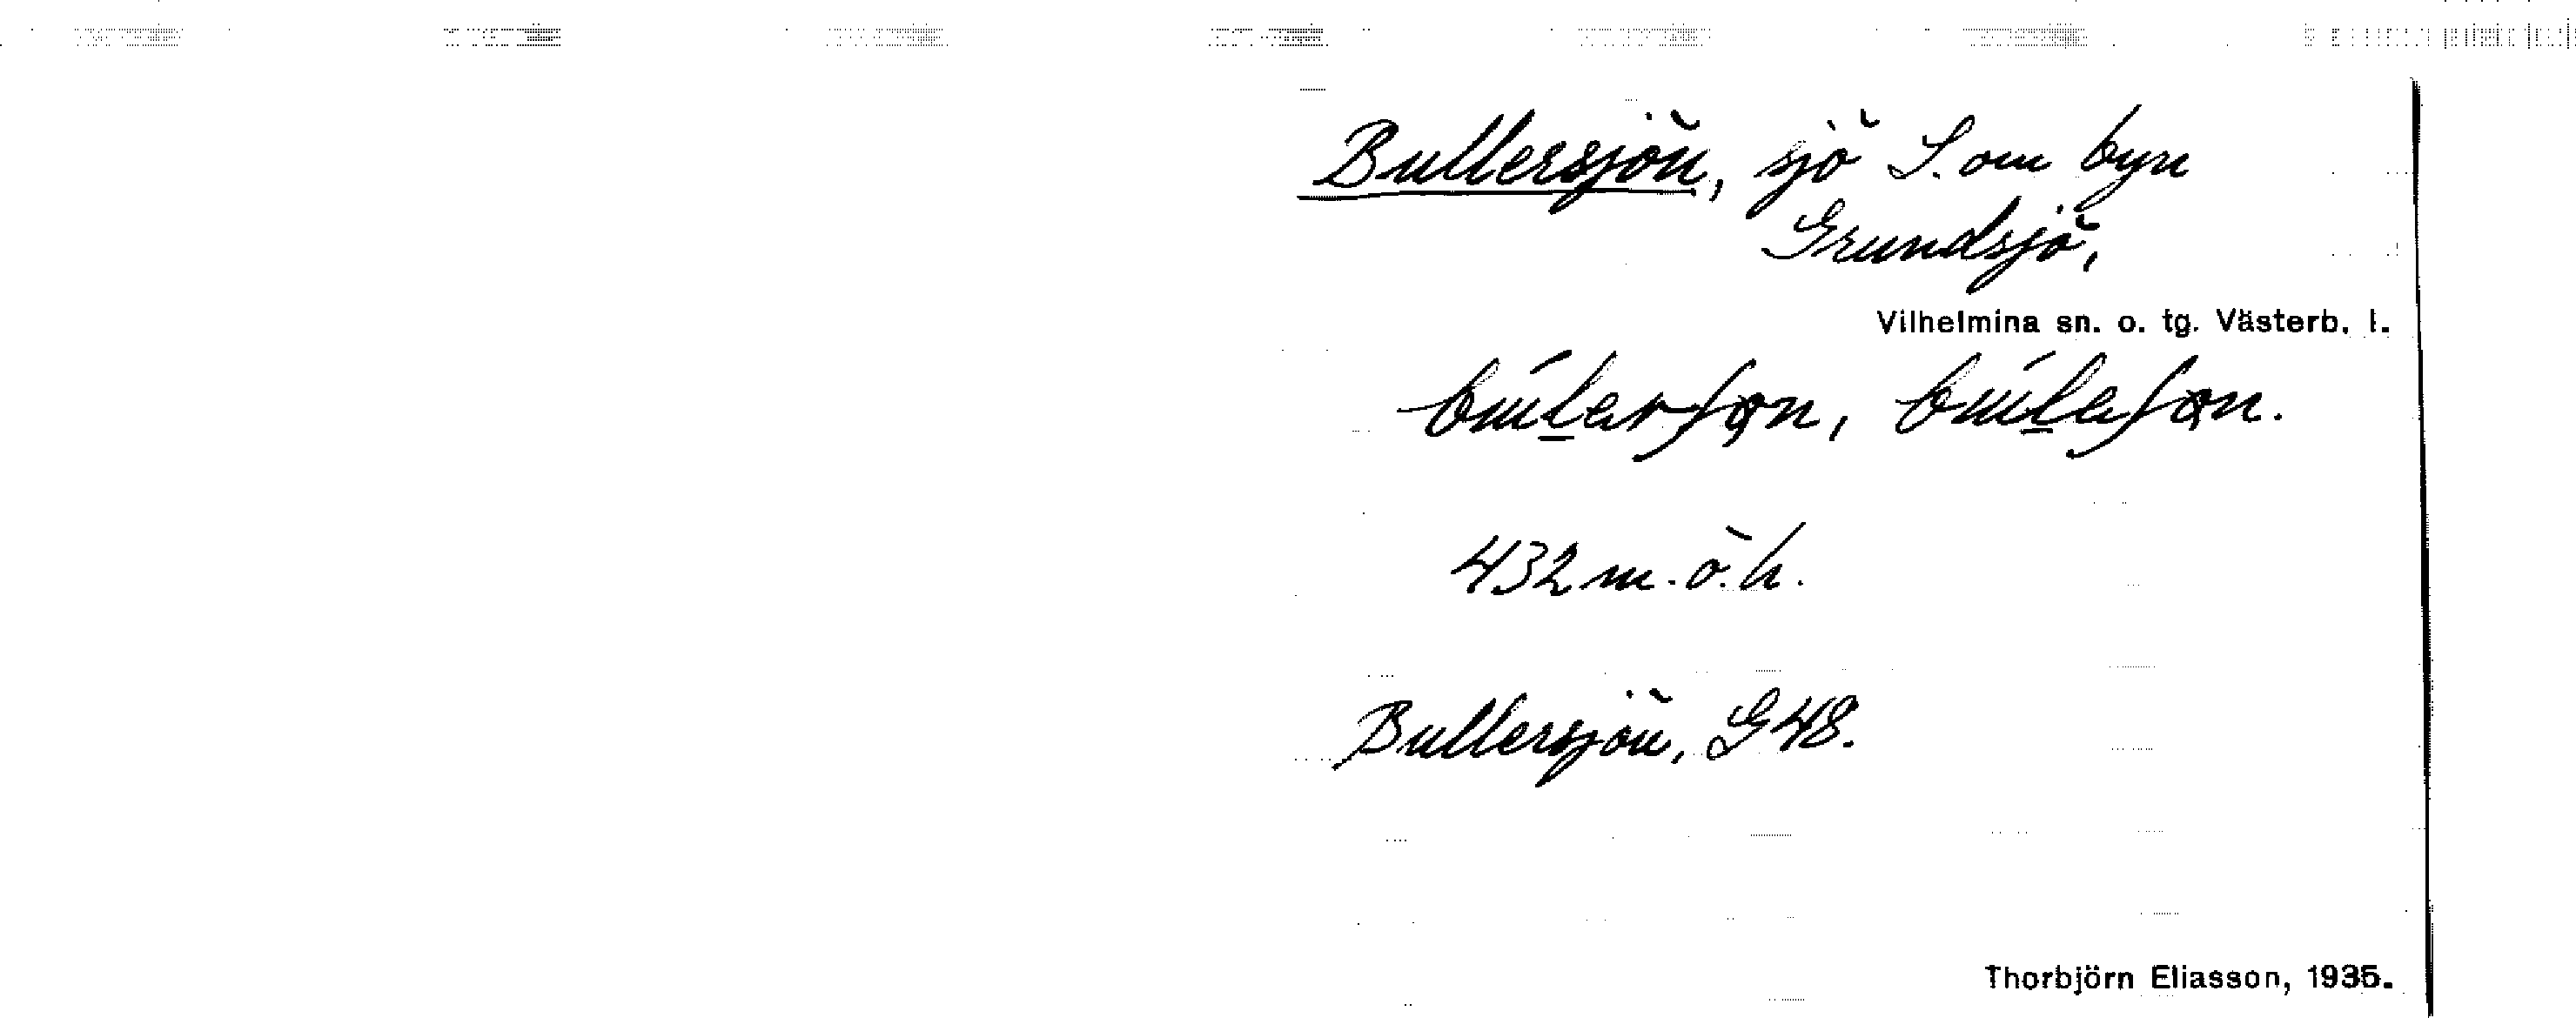 Bullersjön, sjö S. om byn
Grundsjö,
Vilhelmina sn. o. tg. Västerb. l.
432 m. ö. h.
Bullersjön, G48.
Thorbjörn Eliasson, 1935.